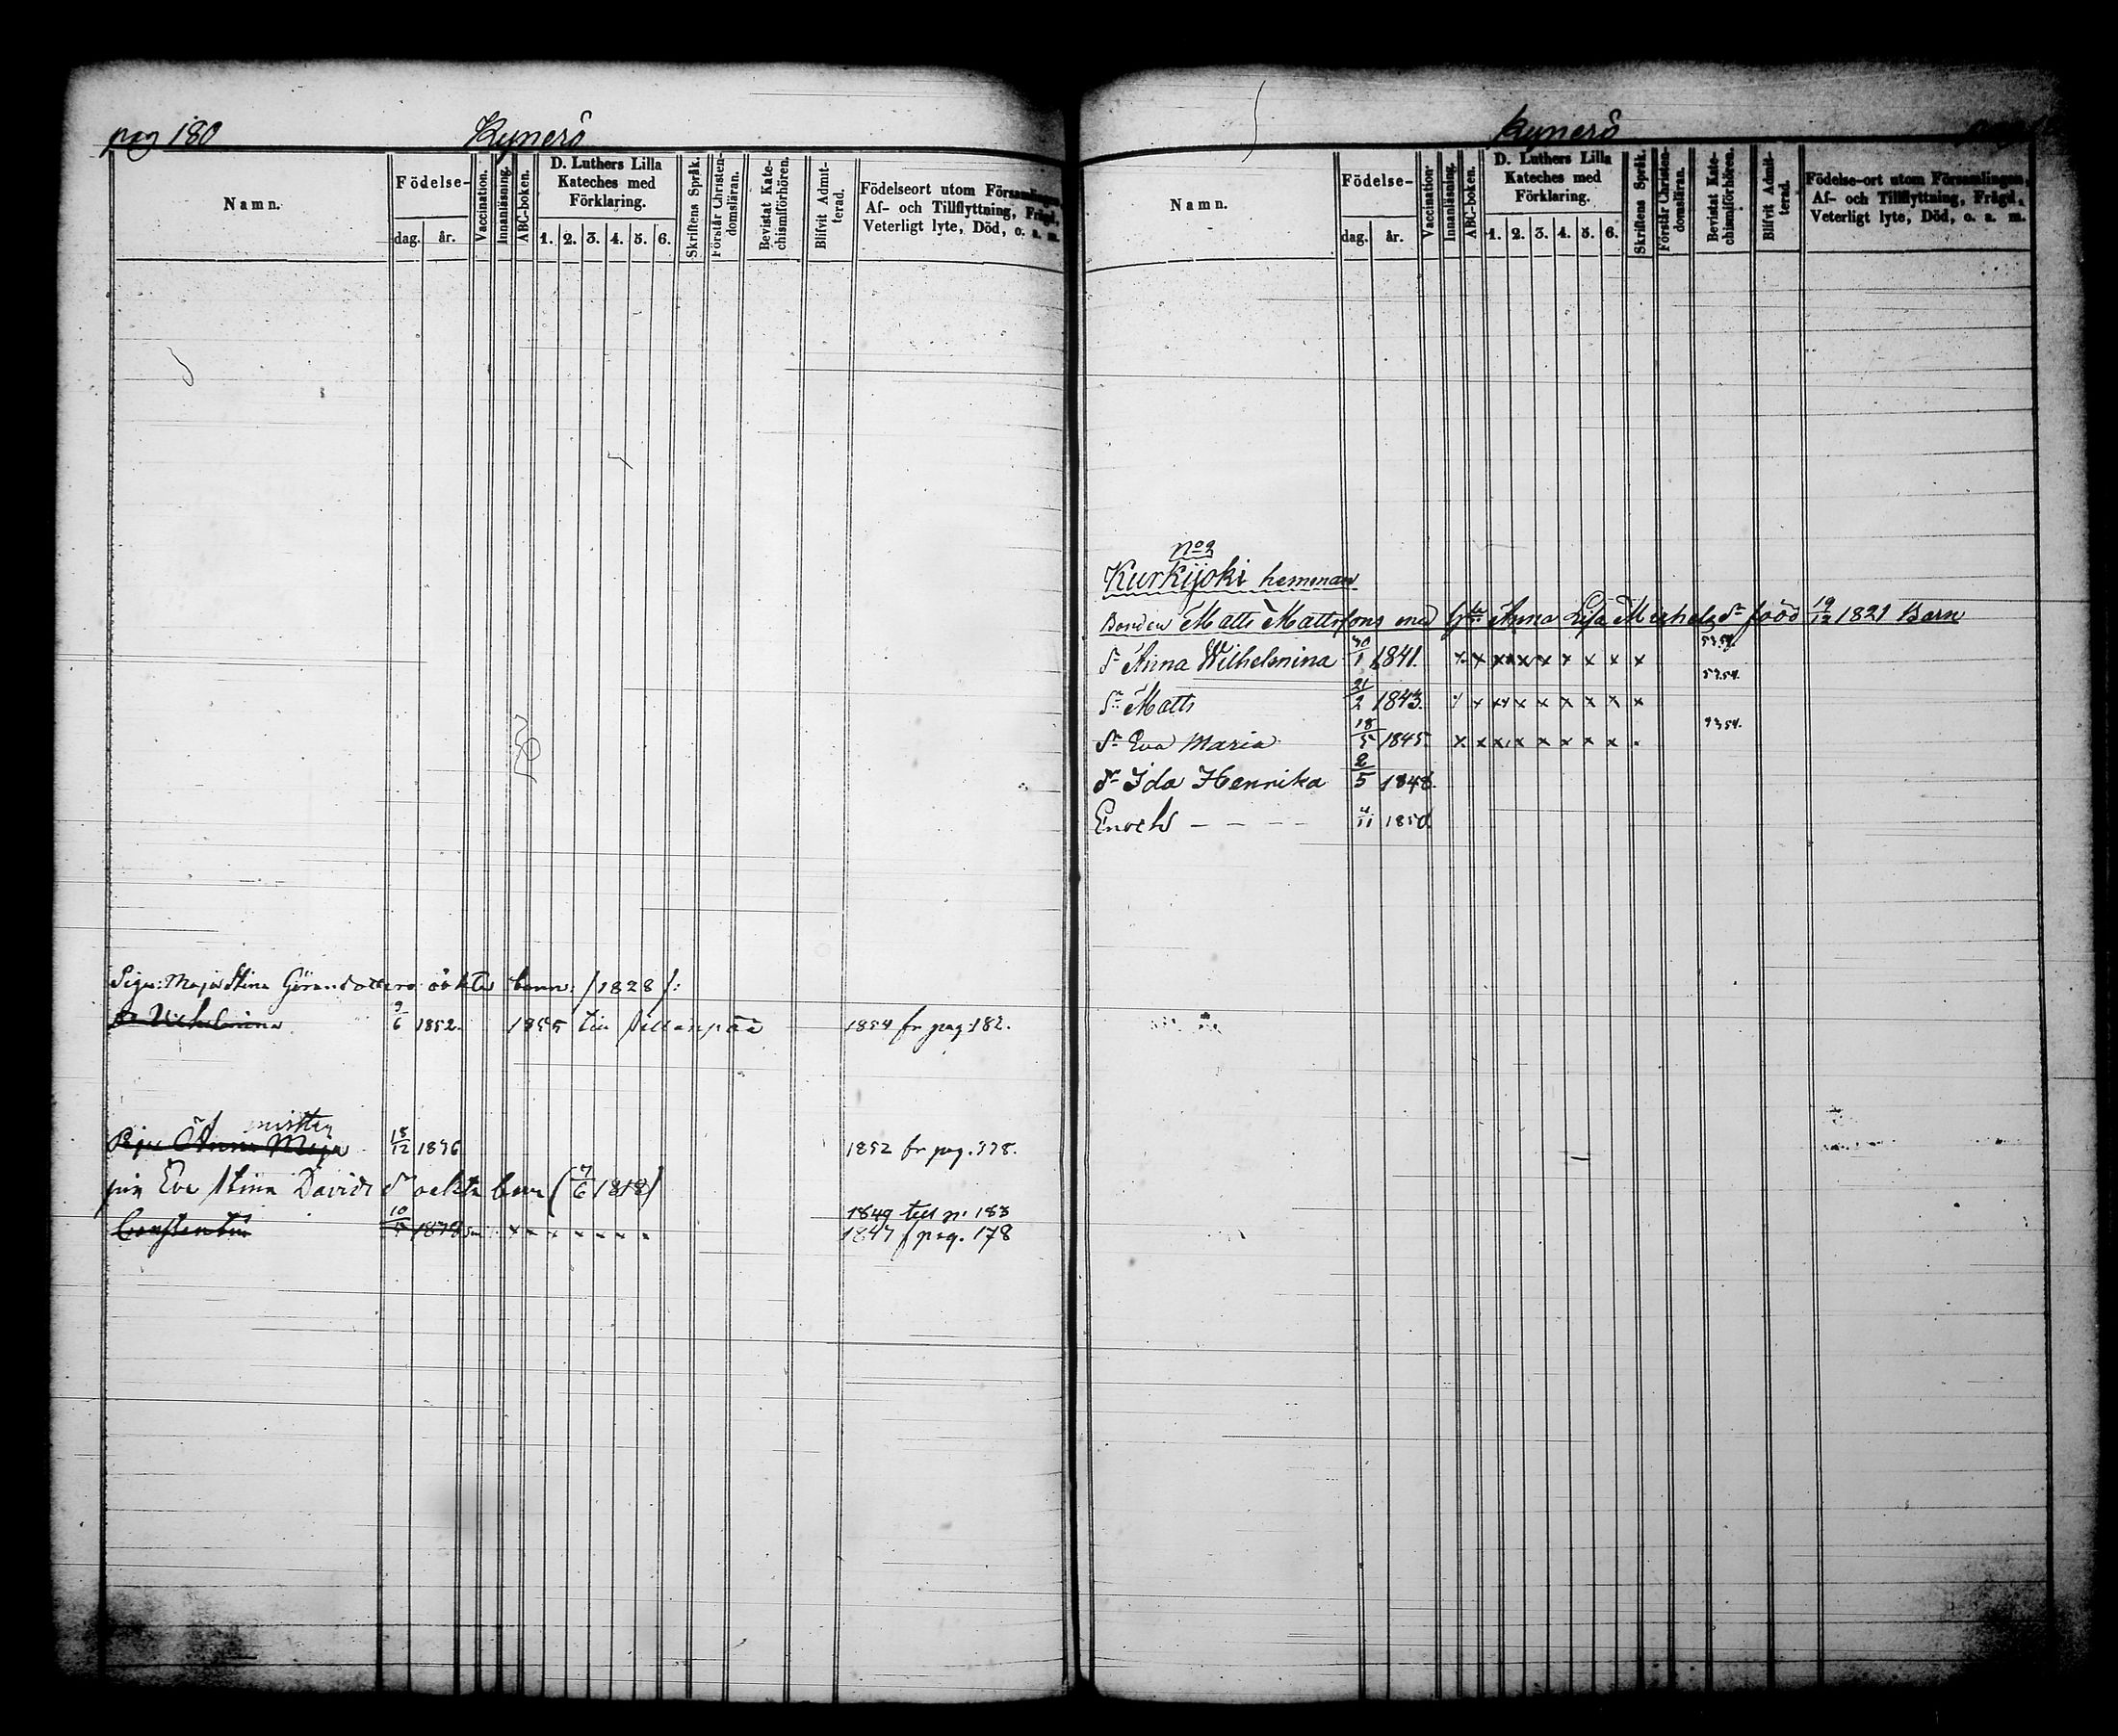 pag 180
Kynerö
Namn.
Födelse-
dag.
år.
Vaccination.
Innanläsning.
ABC-boken.
D. Luthers Lilla
Kateches med
Förklaring.
1. 2. 3. 4. 5. 6.
Skriftens Språk.
Förstår Christen-
domsläran.
Bevistat Kate-
chismiförhören.
Blifvit Admit-
terad.
Födelseort utom Församlingen,
Af- och Tillflyttning, Frägd,
Veterligt lyte, Död, o. a. m.
Pigan Maja Stina Görans dotters oäkta barn: /1828/:
Wilhelmina 9/6 1852. 1855 till 1854 fr pag: 182.
Piga Anna Maja 15/12 1836 1852 fr pag. 378.
pig Eva Stina Davids dr oekta barn (7/6 1818)
1849 till p. 183
Constantin 10/5 1839 x x x x x x x 1847 f pag. 178
Kynerö
Namn.
Födelse-
dag.
år.
Vaccination.
Innanläsning.
ABC-boken.
D. Luthers Lilla
Kateches med
Förklaring.
1. 2. 3. 4. 5. 6.
Skriftens Språk.
Förstår Christen-
domsläran.
Bevistat Kate-
chismiförhören.
Blifvit Admit-
terad.
Födelse-ort utom Församlingen,
Af- och Tillflyttning, Frägd,
Veterligt lyte, Död, o. a. m.
No 9
Kurkijoki hemman
Bonden Matts Mattssons med Anna Lisa Michels dr född 19/12 1821 Barn
dr Anna Wilhelmina 30/1 1841. x x x x x x x x x x 53.54.
Sn Matts 21/2 1843. x x x x x x x x x 53.54.
dr Eva Maria 18/5 1845. x x x x x x x x 53.54.
dr Ida Henrika 2/5 1848.
Enoch — — — — 4/11 1850.